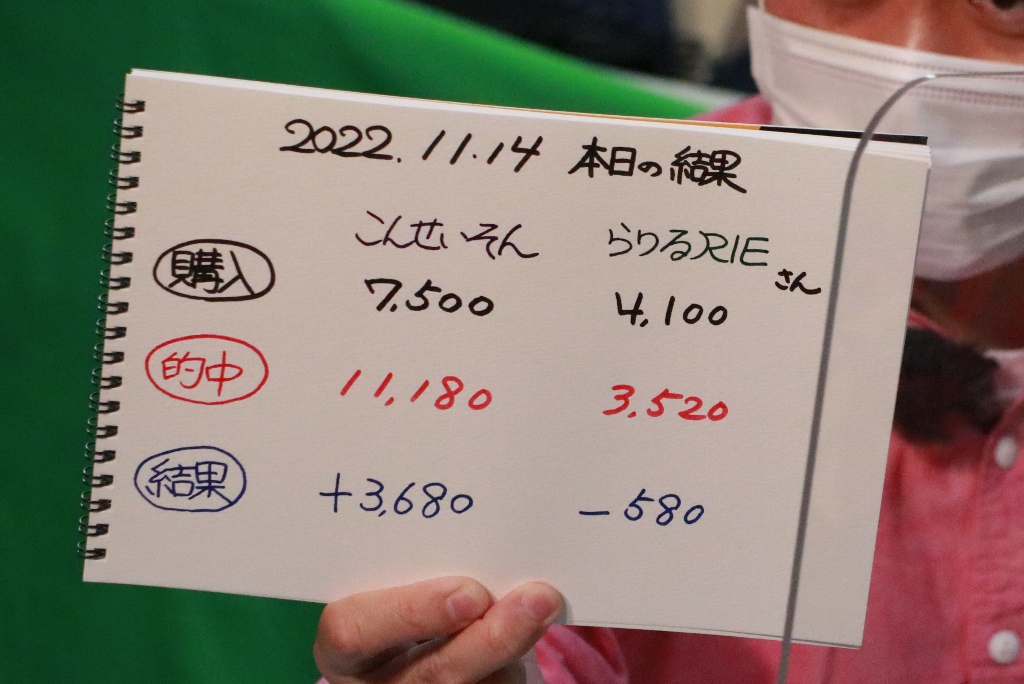 2022.11.14 本日の結果
こんせいそん らりるRIEさん
購入 7,500 4,100
的中 11,180 3,520
結果 +3,680 -580